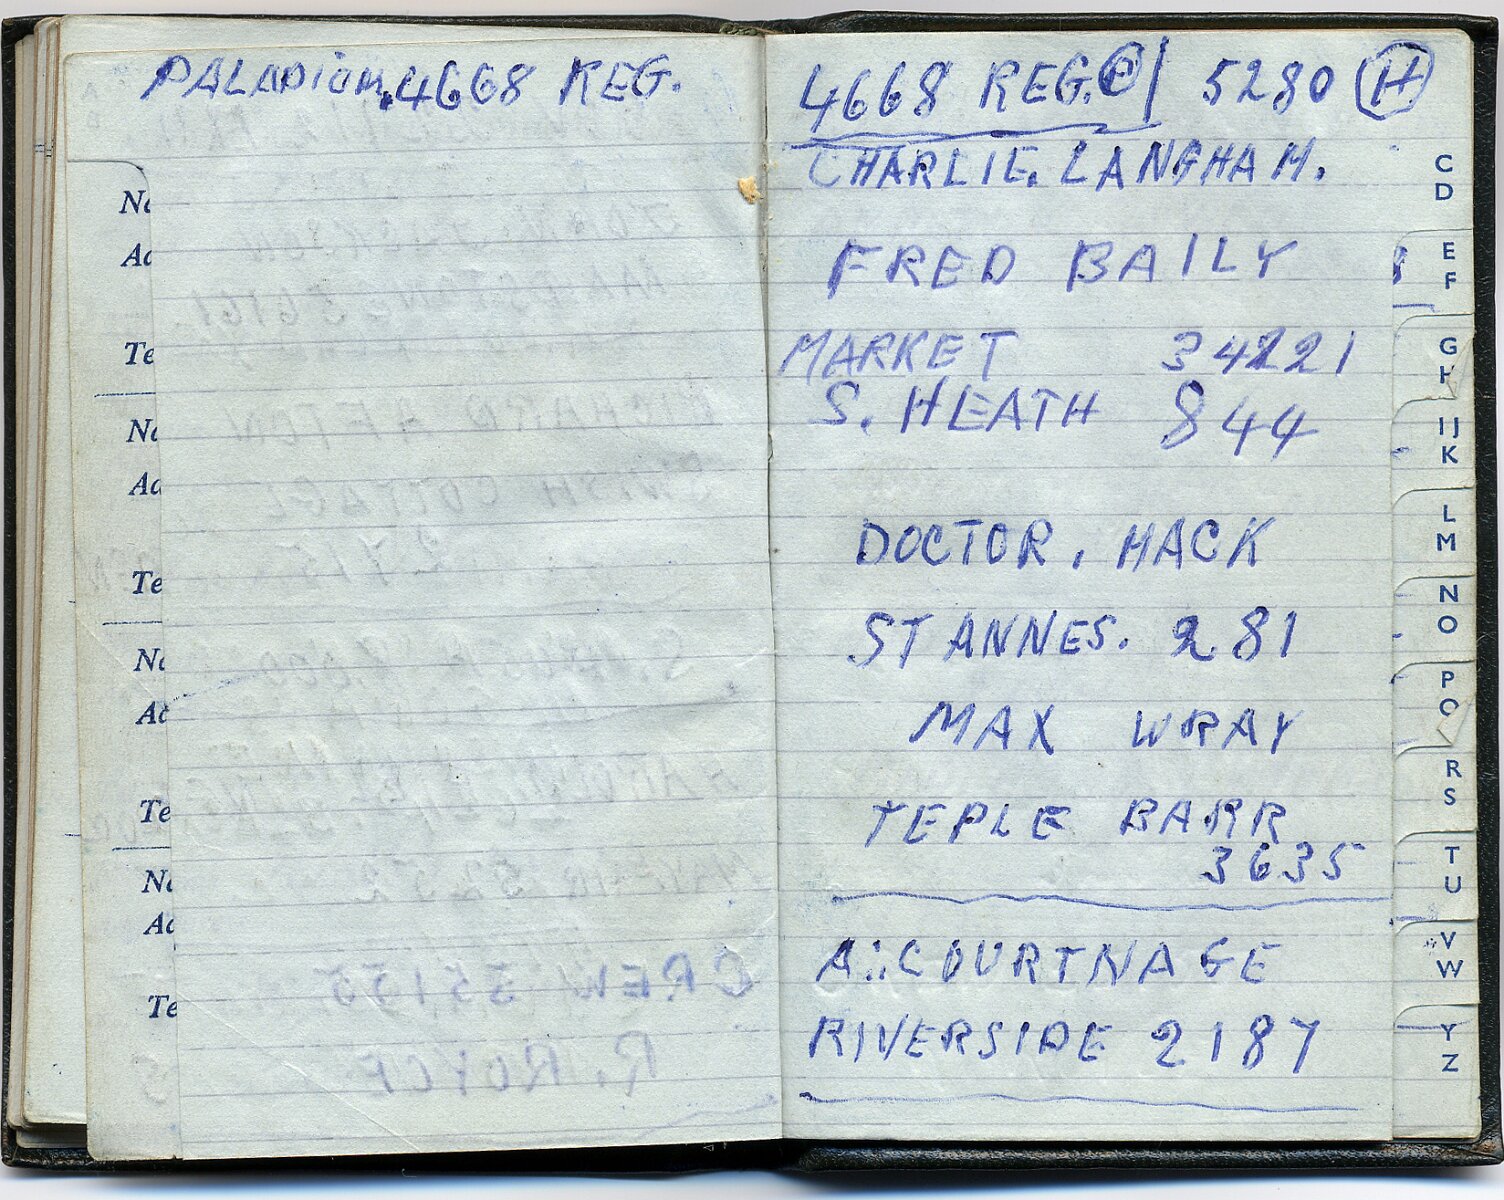 PALADIUM. 4668 REG.
Na
Ad
Te
Na
Ad
Te
Na
Ad
Te
Na
Ad
Te
4668 REG. C | 5280 H
CHARLIE. LANGHAM.
FRED BAILY
MARKET 34221
S. HEATH 844
DOCTOR. HACK
ST ANNES. 281
MAX WRAY
TEPLE BARR
3635
A. COURTNAGE
RIVERSIDE 2187
C
D
E
F
G
H
IJ
K
L
M
N
O
P
Q
R
S
T
U
V
W
Y
Z